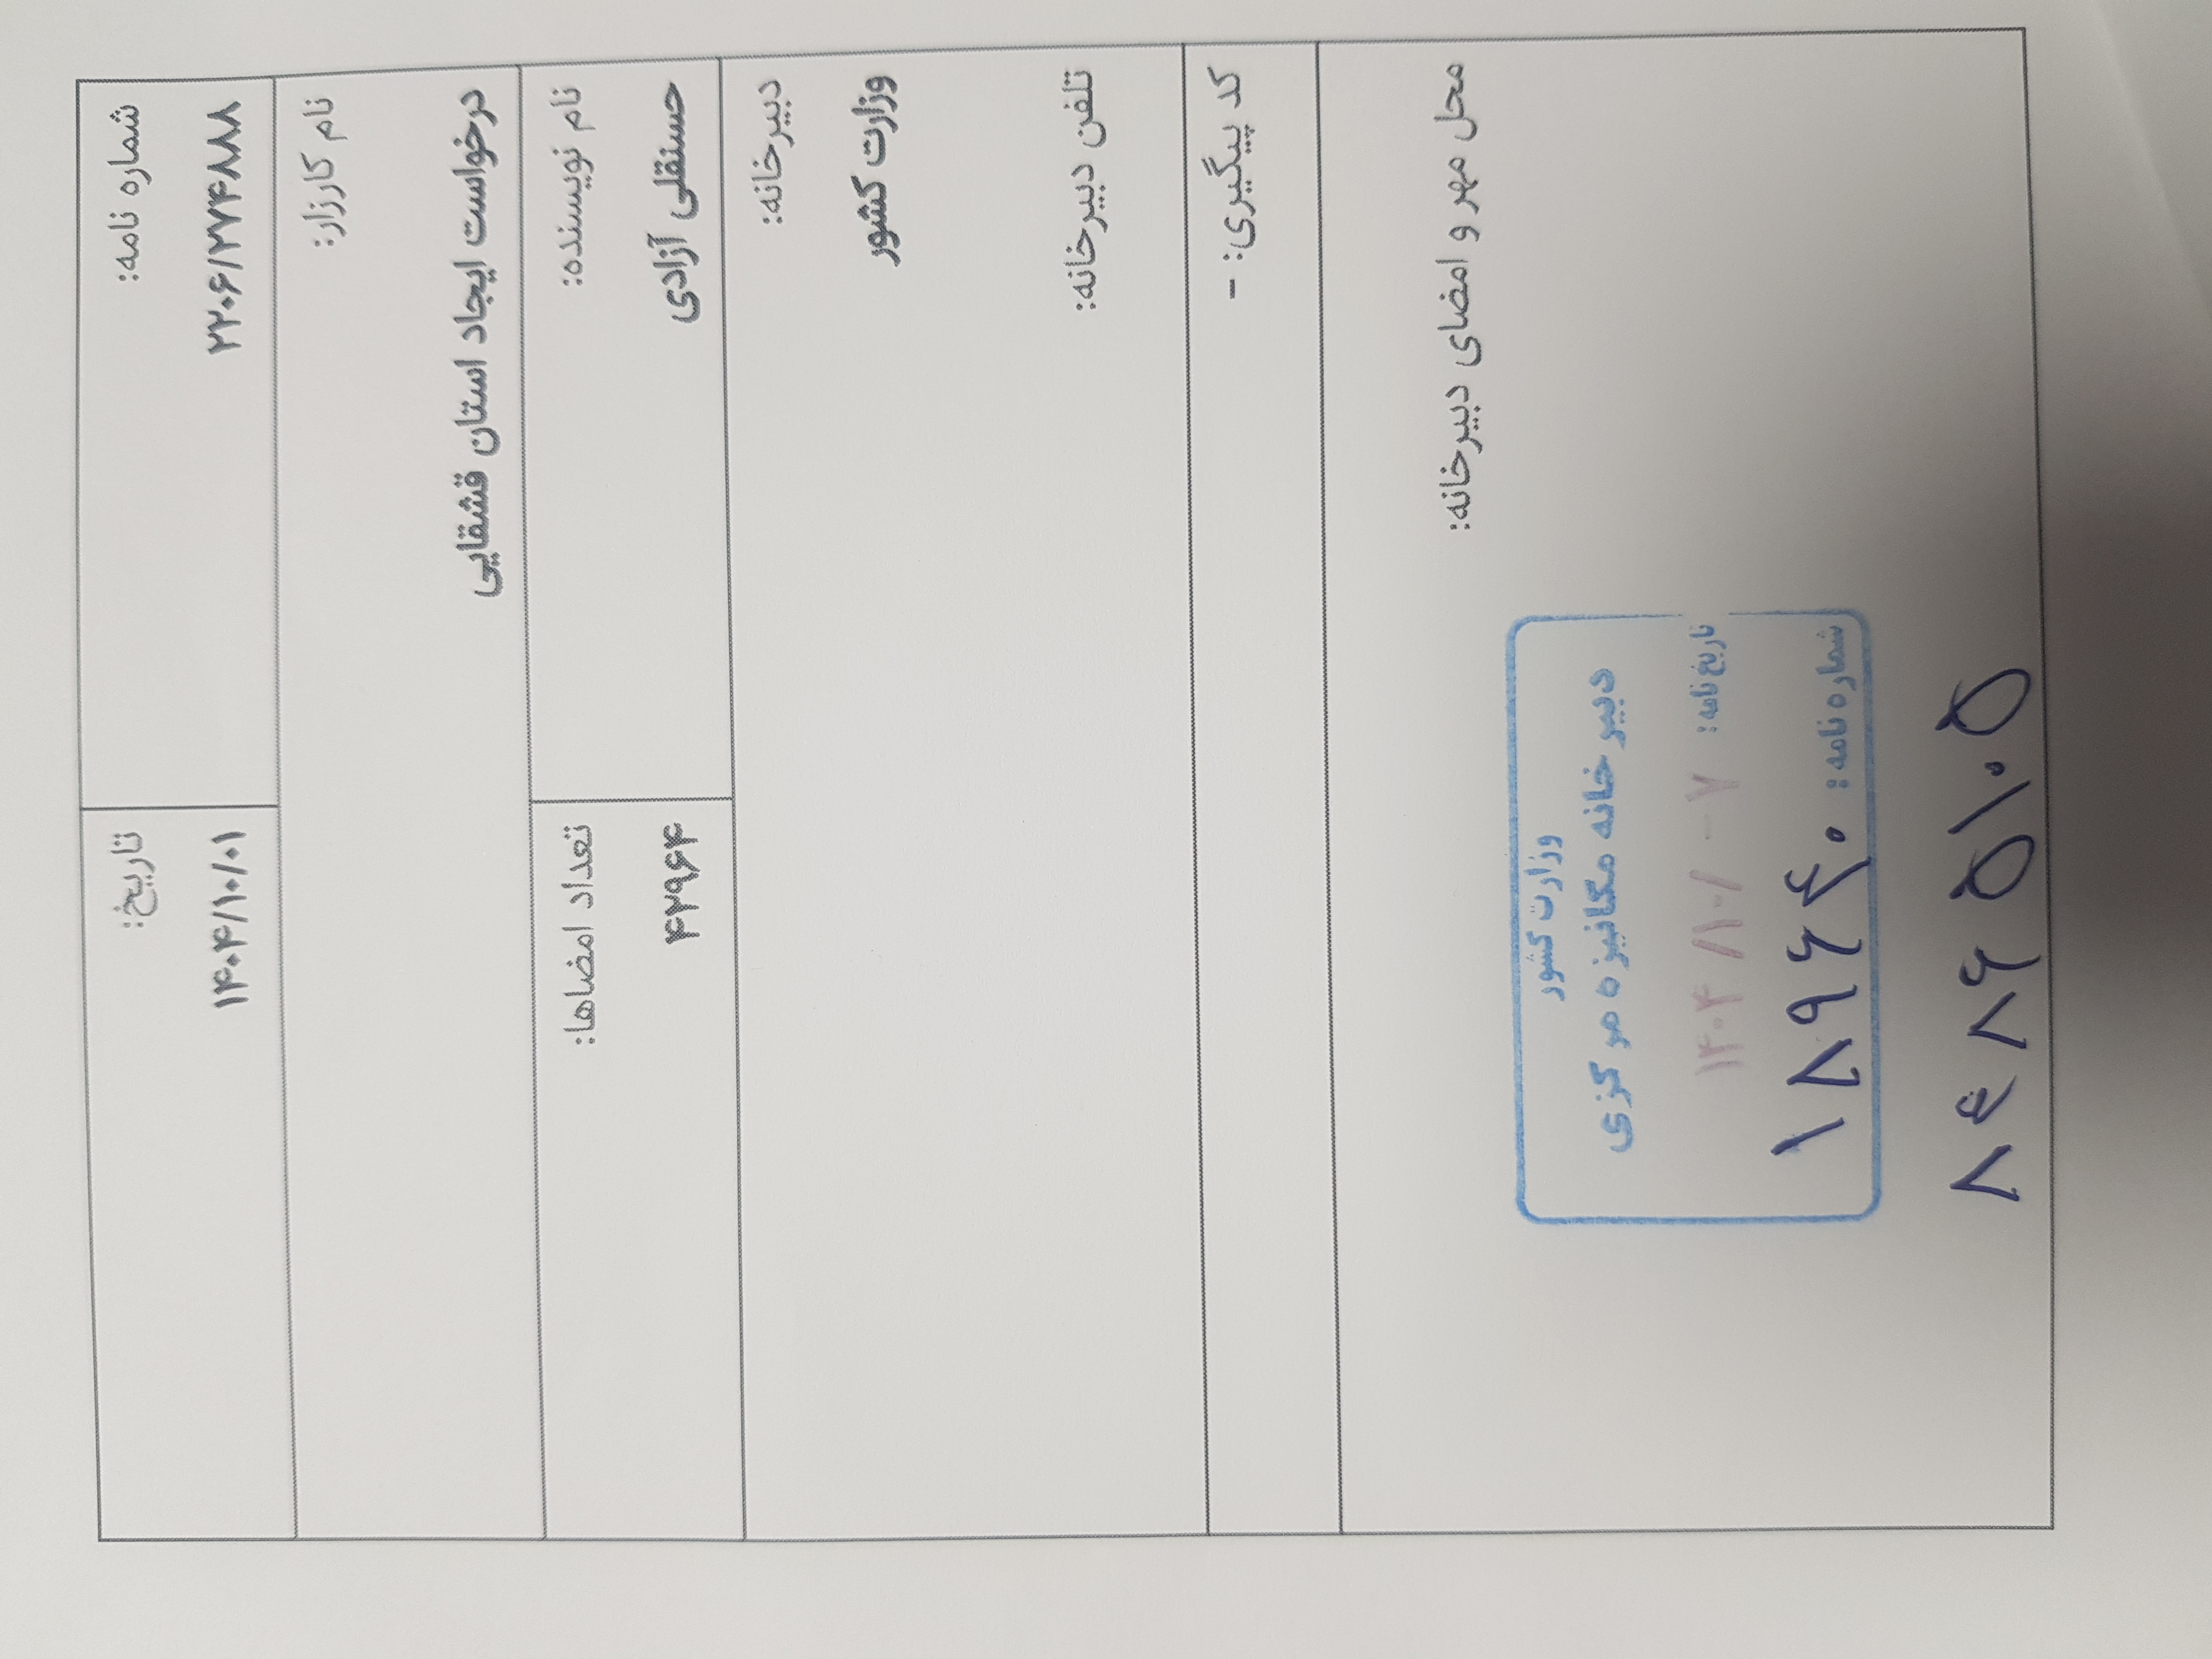 شماره نامه:
۲۲۰۶/۲۷۴۸۸۸
تاریخ:
۱۴۰۴/۱۰/۰۱
نام کارزار:
درخواست ایجاد استان قشقایی
نام نویسنده:
حسنقلی آزادی
تعداد امضاها:
۴۲۹۶۴
دبیرخانه:
وزارت کشور
تلفن دبیرخانه:
کد پیگیری: -
محل مهر و امضای دبیرخانه:
وزارت کشور
دبیرخانه مکانیزه مرکزی
تاریخ نامه: ۱۴۰۴/۱۰/-۷
شماره نامه: ۱۸۹۶۴۰
۸۴۸۶۵۱۰۵